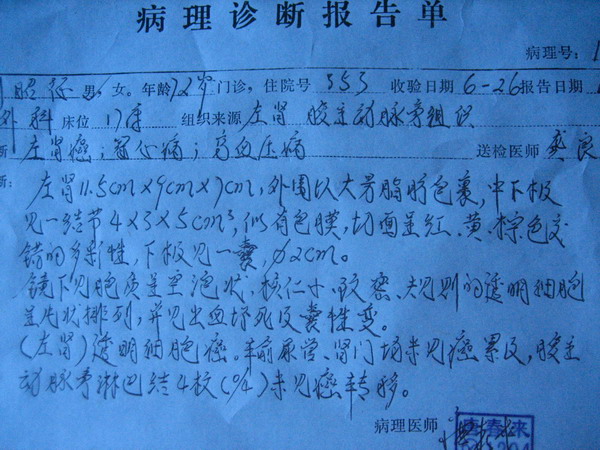 病理诊断报告单
病理号:
男 女。年龄72岁 门诊，住院号 553 收验日期 6-26 报告日期
外科 床位 17床 组织来源 左肾 腹主动脉旁组织
左肾癌；冠心病；高血压病 送检医师 龚良
左肾11.5cm×9cm×7cm，外围以大片脂肪包裹，中下极
见一结节4×3×5cm³，似有包膜，切面呈红、黄、棕色交
错的多彩性，下极见一囊，φ2cm。
镜下见胞质呈空泡状，核仁小、致密、规则的透明细胞
呈片状排列，并见出血坏死及囊性变。
(左肾)透明细胞癌。输尿管、肾门均未见癌累及，腹主
动脉旁淋巴结4枚(0/4)未见癌转移。
病理医师 唐春来